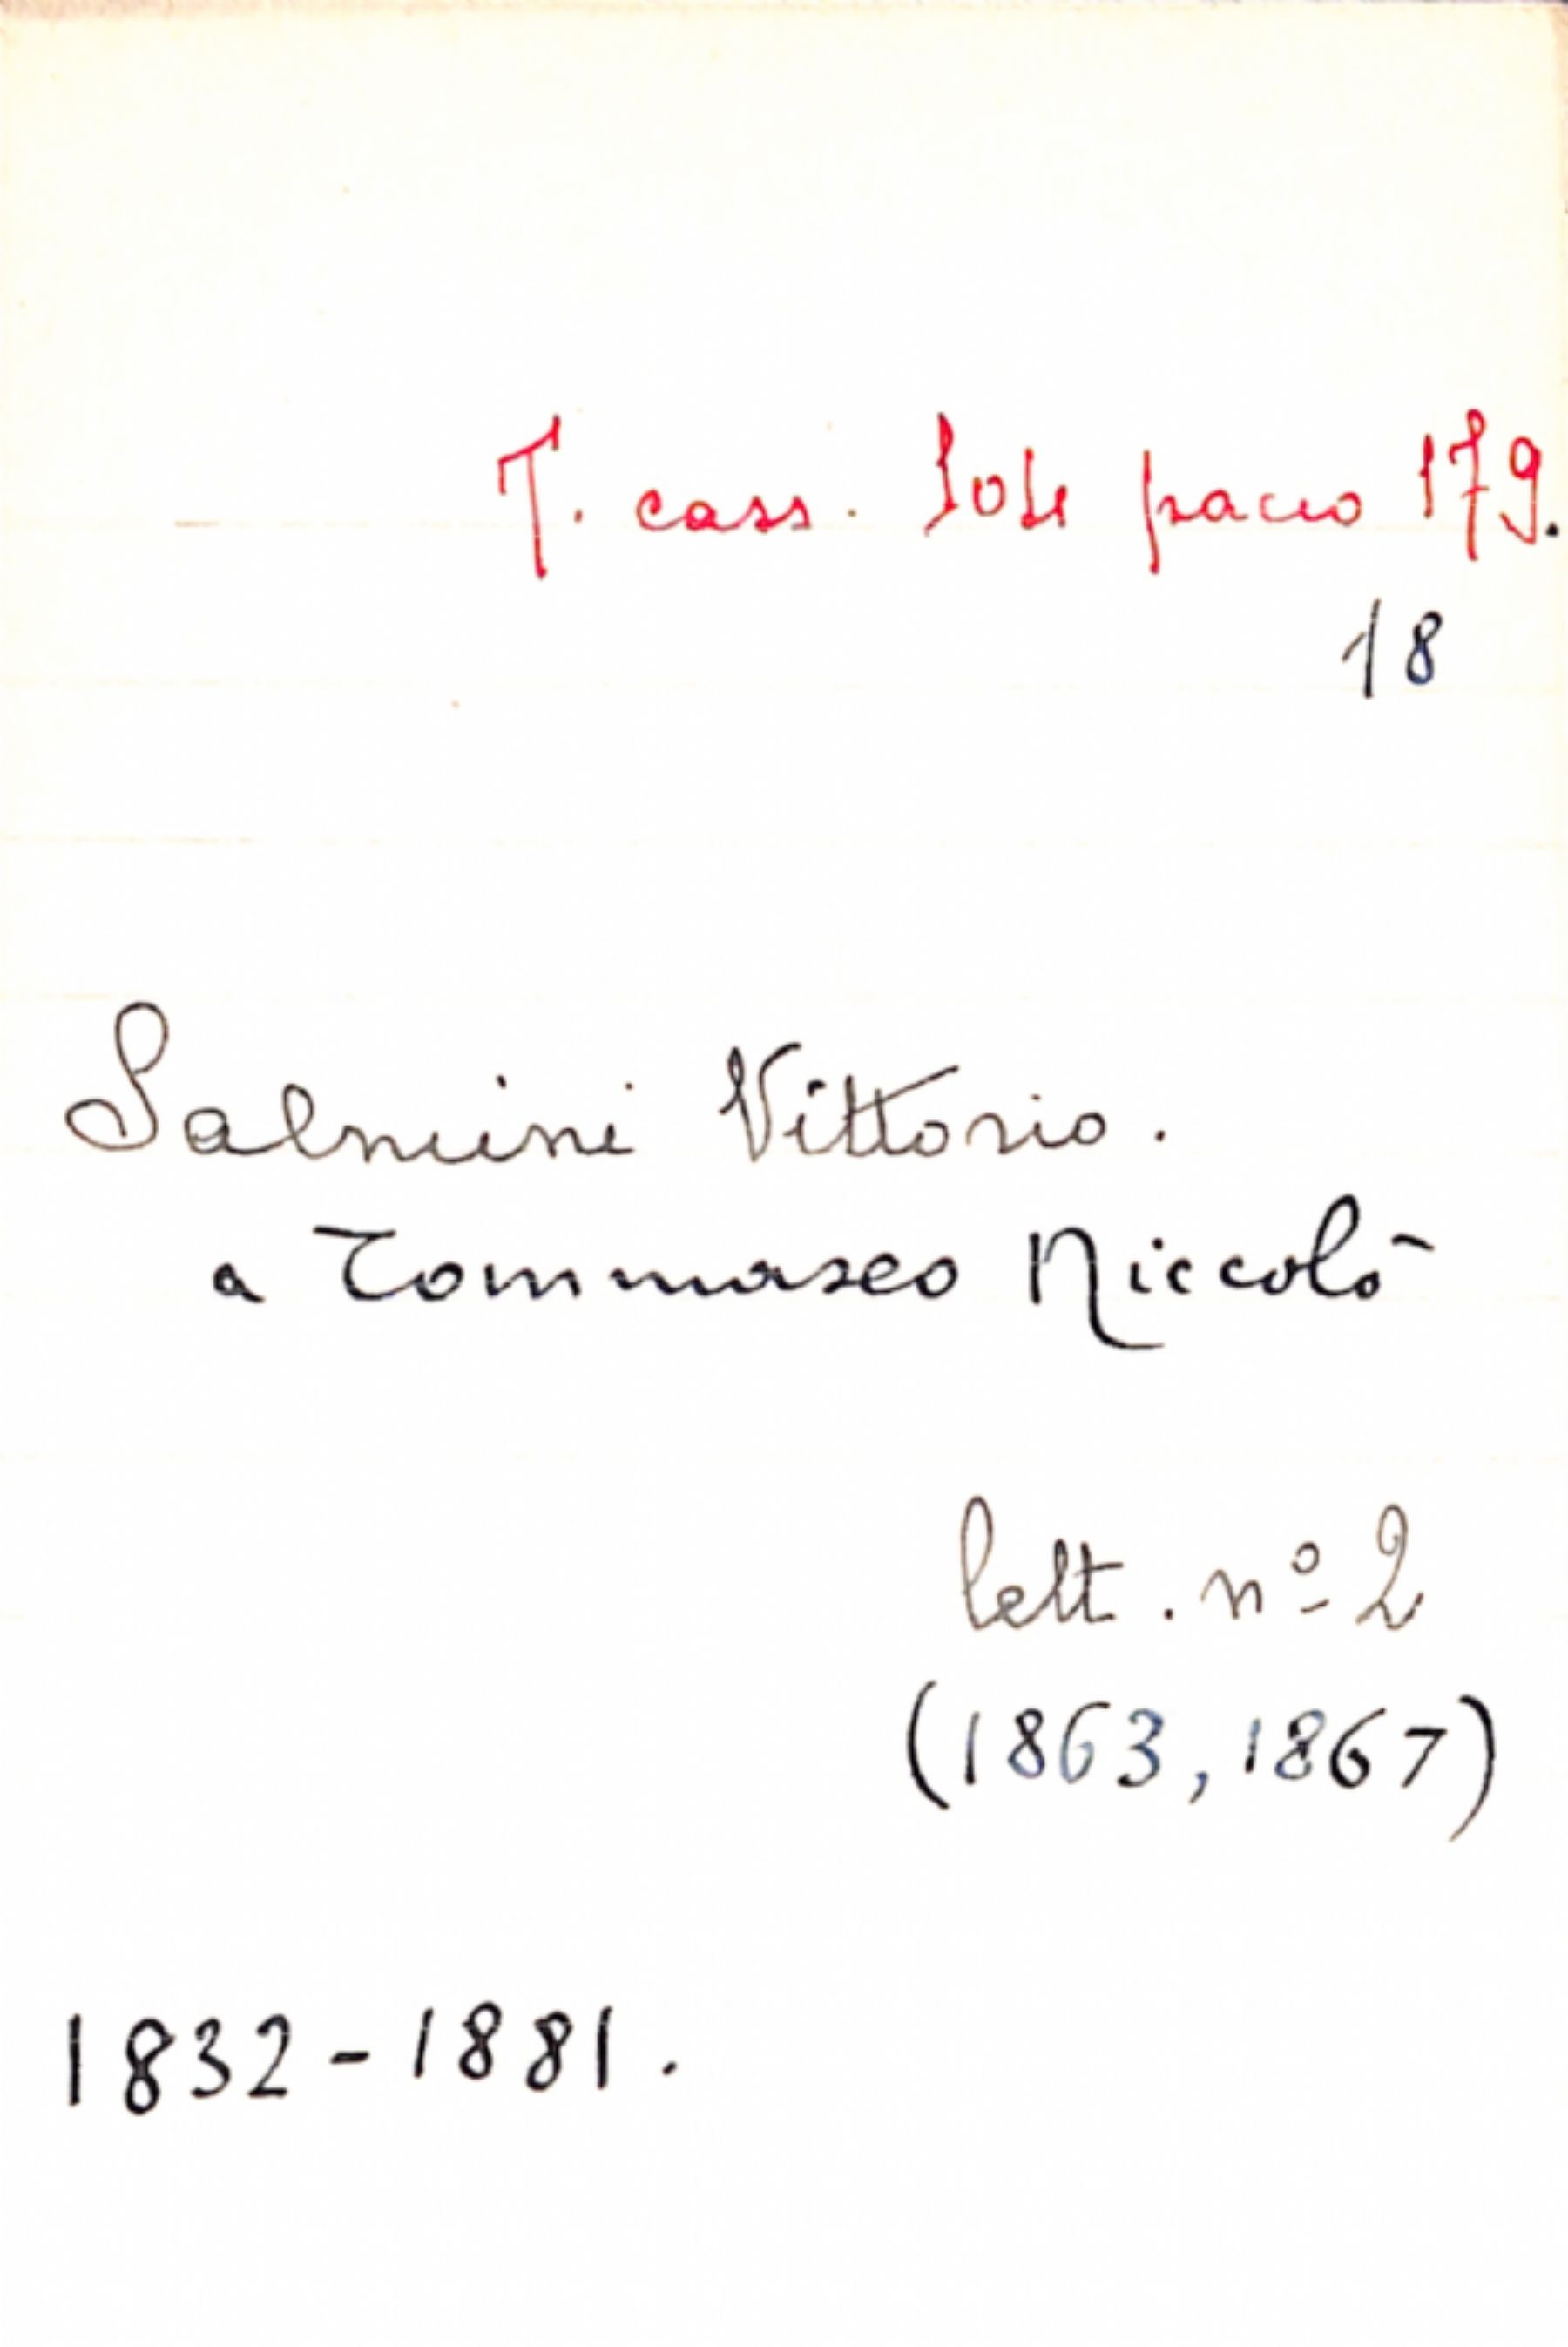 T. cass. pacco 179.
18
Salmini Vittorio.
a Tommaseo Niccolò
lett. nº 2
(1863, 1867)
1832-1881.